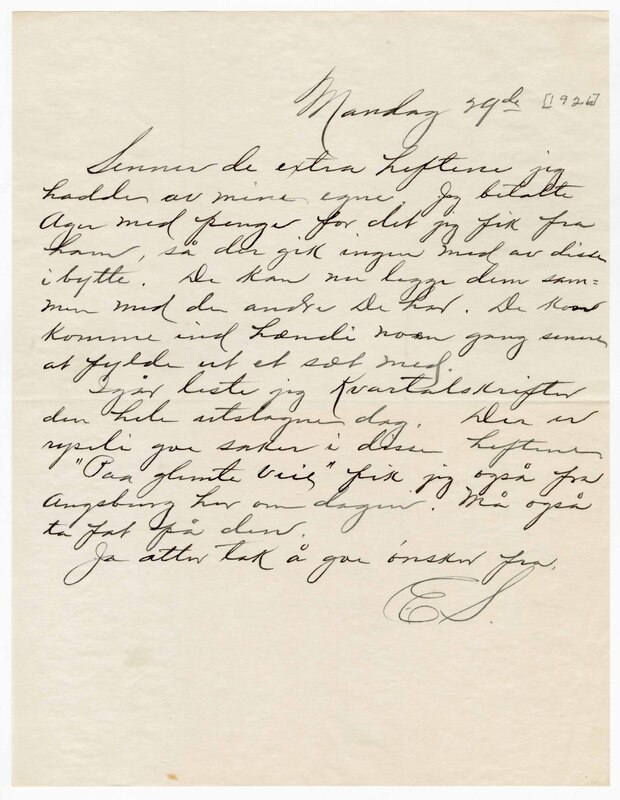 Mandag 29de [1926]
Sender de extra heftene jeg
hadde av mine egne. Jeg betalte
Ager med penge for det jeg fik fra
ham, så der gik ingen med av disse
i bytte. De kan nu legge dem sam=
men med de andre De har. De kan
komme ind hændi noen gang senere
at fylde ut et sæt med.
Igår leste jeg Kvartalskrifter
den hele utslagne dag. Der er
gode saker i disse heftene
"Paa glemte Veie" fik jeg også fra
Augsburg her om dagen. Må også
ta fat på den.
Ja atter tak å goe ønsker fra.
ES.